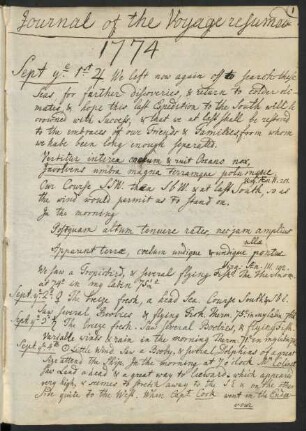 Journal of the Voyage resumed
1774
Sept ye 1st ♃ We left now again off to search these
Seas for farther discoveries, & return to colder cli-
mates, & hope this last Expedition to the South will be
crowned with Success, & that we at last shall be restored
to the embraces of our Friends & Families, from whom
we have been long enough separated.
Vertitur interea coelum & ruit Oceano nox,
Involvens umbra magna terramque polumque
Our Course SSW. then SbW & at last South, so as
the wind would permit us to stand on.
In the morning
Postquam altum tenuere rates, nec jam amplius
ulla
Apparent terrae, coelum undique & undique pontus
We saw a Tropicbird, & several flying Fish. The Thermom.
at 79 in long. calm
Sept ye 2d ♀ The breeze fresh, a head Sea. Course South,
Saw several Boobies, & flying Fish. Therm.
Sept ye 3d ♄ The breeze fresh. Saw several Boobies, & flying Fish.
Variable wind & rain in the morning Therm.
Sept ye 4th ☉ Little Wind. Saw a Booby, & several Dolphins of a great
Size attend the Ship. In the morning at 7 o'clock Mr
saw Land ahead & a great way to Leeward, which appeared
very high, & seemed to stretch away to the S.E. & on the other
Side quite to the West. When Capt Cook went in the